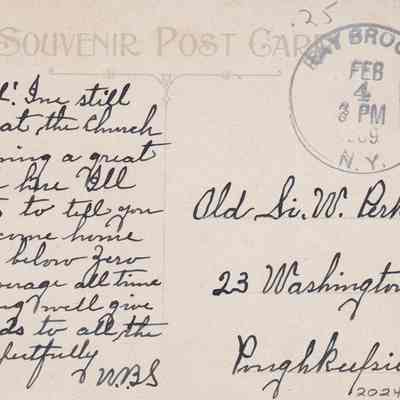 .25
SOUVENIR POST CAR
RAY BROO
FEB
4
3 PM
09
N.Y.
L! Ime still
at the Church
ning a great
here Ill
to tell you
come home
below zero
verage all time
ng well give
ds to all the
pectfully
W.B.S
Old Si. W. Perk
23 Washington
Poughkeepsie
2024